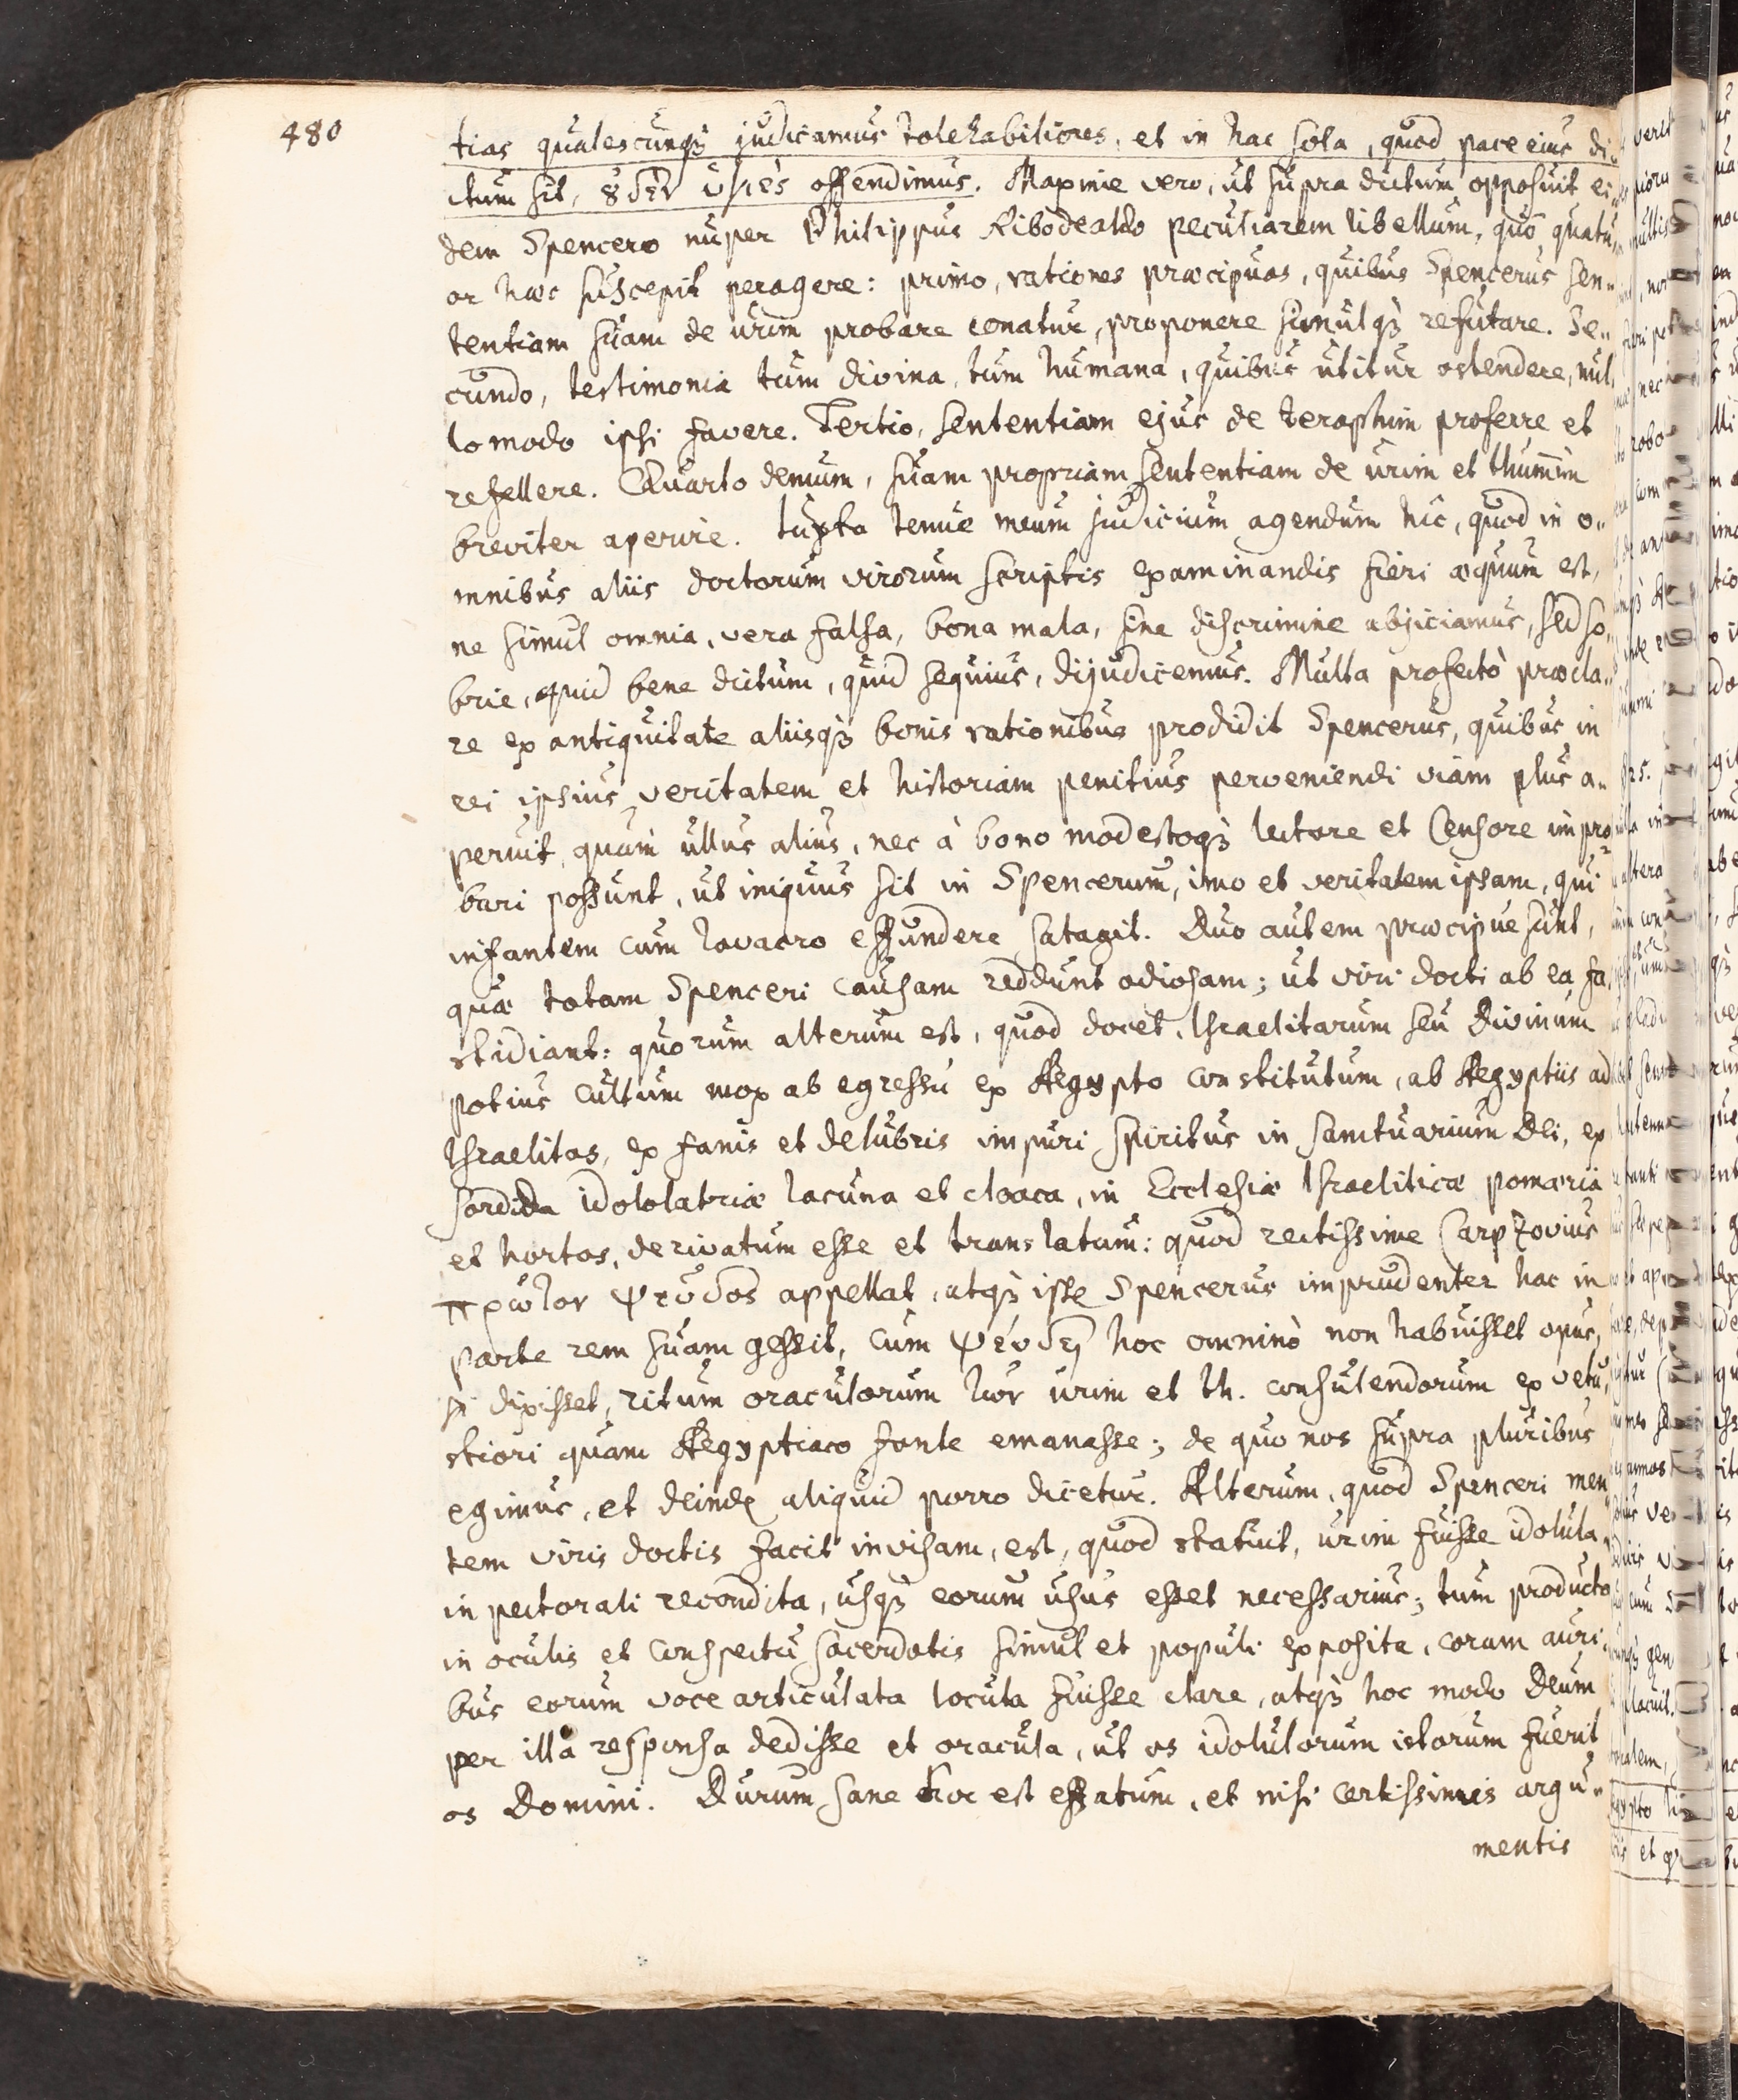 480
tias qualescunqꝫ judicamus tolerabiliores, et in hac sola, quod pace eius di-
ctum sit, ȣ̓δὲν ὑγιὲς offendimus. Maxime vero, ut supra dictum opposuit ei-
dem Spencero nuper Philippus Ribodealdo peculiarem libellum, quo quatu-
or haec suscepit peragere: primo, rationes praecipuas, quibus Spencerus sen-
tentiam suam de urim probare conatur, proponere simulqꝫ refutare. Se-
cundo, testimonia tum divina, tum humana, quibus utitur ostendere, nul-
lo modo ipsi favere. Tertio, sententiam ejus de teraphim proferre et
refellere. Quarto demum, suam propriam sententiam de urim et thummim
breviter aperire. Iuxta tenue meum judicium agendum hîc, quod in o-
mnibus aliis doctorum virorum scriptis examinandis fieri aequum est,
ne simul omnia, vera falsa, bona mala, sine discrimine abjiciamus, sed so-
brie, quid bene dictum, quid sequius, dijudicemus. Multa profectò praecla-
re ex antiquitate aliisqꝫ bonis rationibus prodidit Spencerus, quibus in
rei ipsius veritatem et historiam penitius perveniendi viam plus a-
peruit, quam ullus alius, nec à bono modestoqꝫ lectore et Censore impro-
bari possunt, ut iniquus sit in Spencerum, imo et veritatem ipsam, qui
infantem cum lavacro effundere satagit. Duo autem praecipue sunt,
quae totam Spenceri causam reddunt odiosam; ut viri docti ab ea fa-
stidiant: quorum alterum est, quod docet, Israelitarum seu Divinum
potius cultum mox ab egressu ex Aegypto constitutum, ab Aegyptiis ad
Israelitas, ex fanis et delubris impuri spiritus in sanctuarium Dei, ex
sordida idololatriae lacuna et cloaca, in Ecclesiae Israeliticae pomaeria
et hortos, derivatum esse et translatum: quod rectissime Carpzovius
πρῶτον ψεῦδος appellat, atqꝫ isse Spencerus imprudenter hac in
parte rem suam gessit, cum ψεύδει hoc omninò non habuisset opus,
si dixisset, ritum oraculorum τῶν urim et th. consulendorum ex vetu-
stiori quam Aegyptiaco fonte emanasse; de quo nos supra pluribus
egimus, et deinde aliquid porro dicetur. Alterum, quod Spenceri men-
tem viris doctis facit invisam, est, quod statuit, urim fuisse idolula
in pectorali recondita, usqꝫ eorum usus esset necessarius; tum producto
in oculis et conspectu sacerdotis simul et populi exposita, coram auri-
bus eorum voce articulata locuta fuisse clare, atqꝫ hoc modo Deum
per illa responsa dedisse et oracula, ut os idolulorum istorum fuerit
os Domini. Durum sane hoc est effatum, et nisi certissimis argu-
mentis